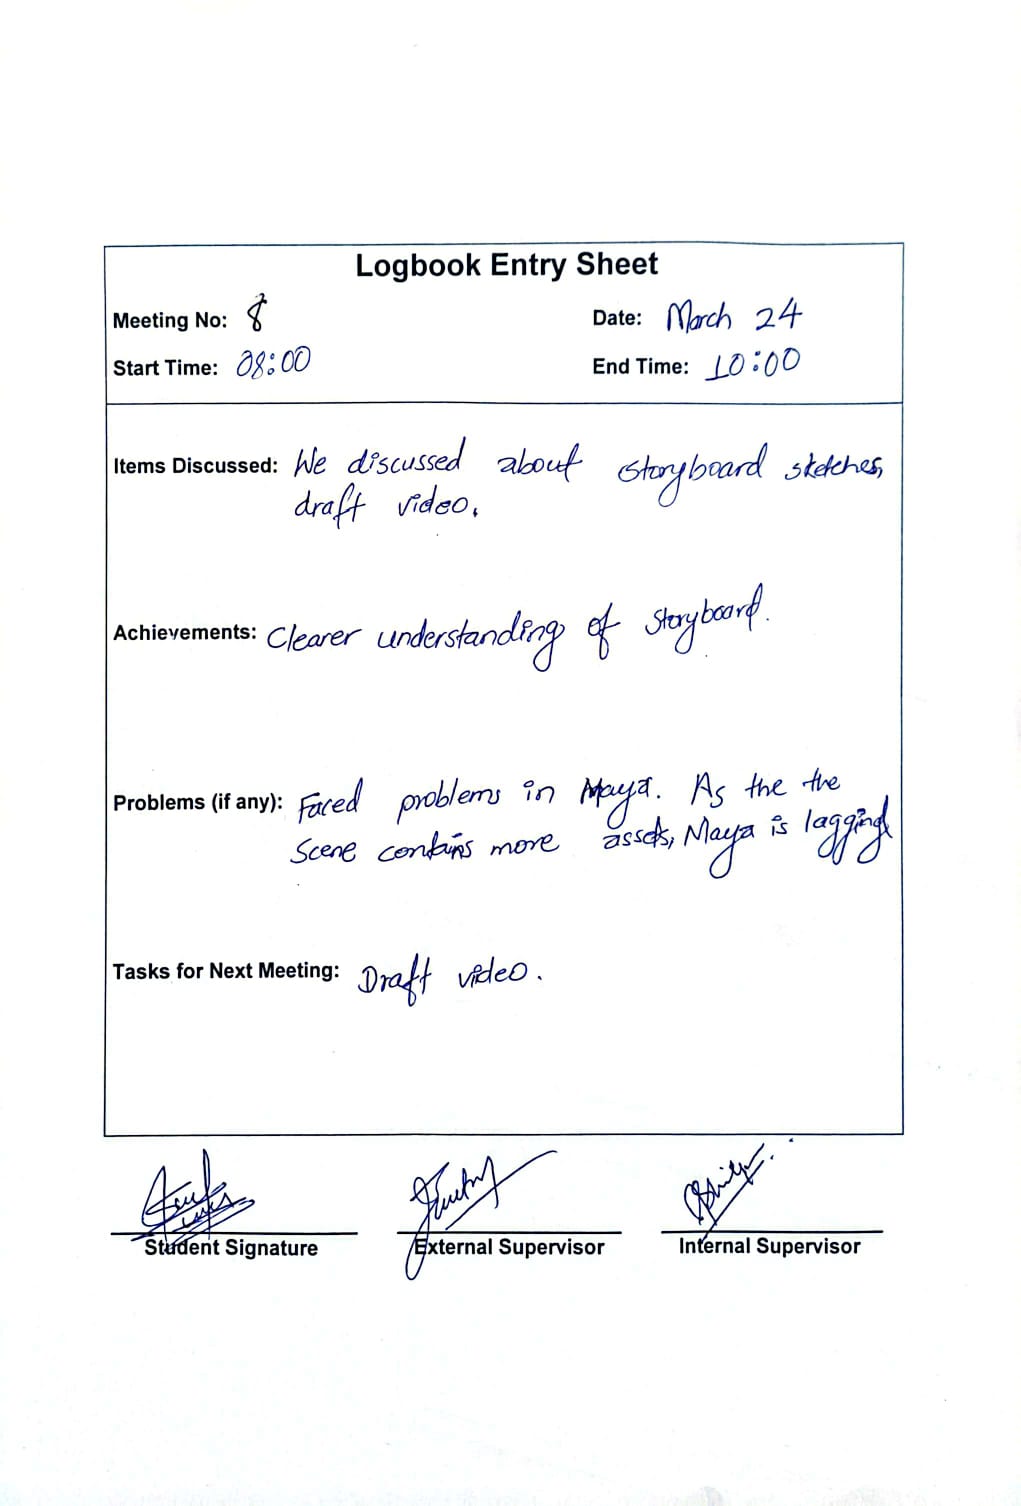 Logbook Entry Sheet
Meeting No: 8 Date: March 24
Start Time: 08:00 End Time: 10:00
Items Discussed: We discussed about storyboard sketches,
draft video.
Achievements: Clearer understanding of storyboard.
Problems (if any): Faced problems in Maya. As the the
scene contains more assets, Maya is lagging
Tasks for Next Meeting: Draft video.
Student Signature External Supervisor Internal Supervisor